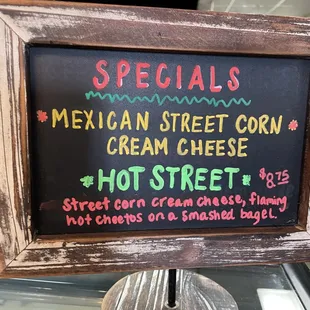 SPECIALS
MEXICAN STREET CORN
CREAM CHEESE
HOT STREET $8.75
Street corn cream cheese, flaming
hot cheetos on a smashed bagel.